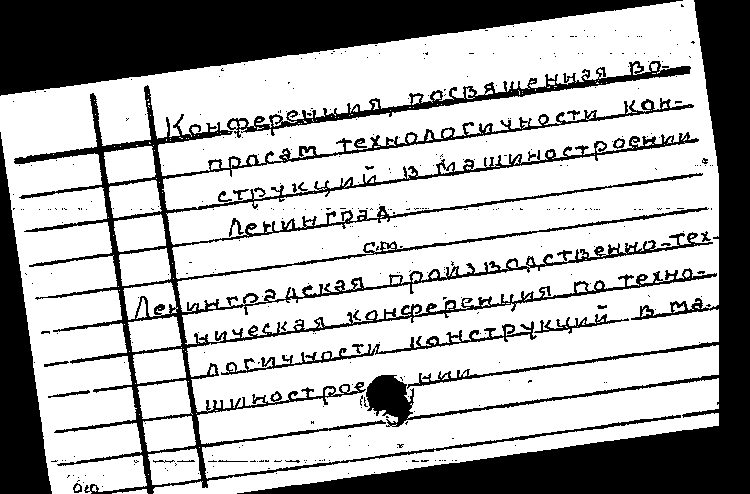 Конференция, посвященная во-
просам технологичности кон-
струкций в машиностроении
Ленинград.
см.
Ленинградская производственно-тех-
ническая конференция по техно-
логичности конструкций в ма-
шиностроении.